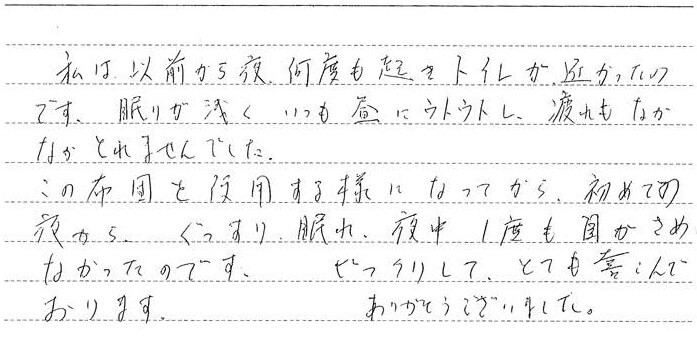 私は、以前から夜、何度も起きトイレが近かったの
です。眠りが浅く いつも昼にウトウトし、疲れもなか
なかとれませんでした。
この布団を使用する様になってから、初めての
夜から、ぐっすり眠れ、夜中1度も目がさめ
なかったのです。 びっくりして、とても喜こんで
おります。 ありがとうございました。